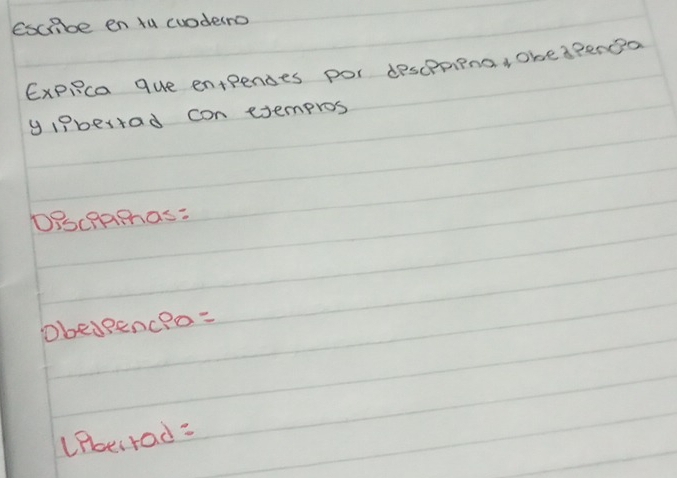 Escribe en tu cuaderno
Explica que entiendes por disciplina, obediencia
y libertad con ejemplos
Disciplinas:
Obediencia =
Libertad =